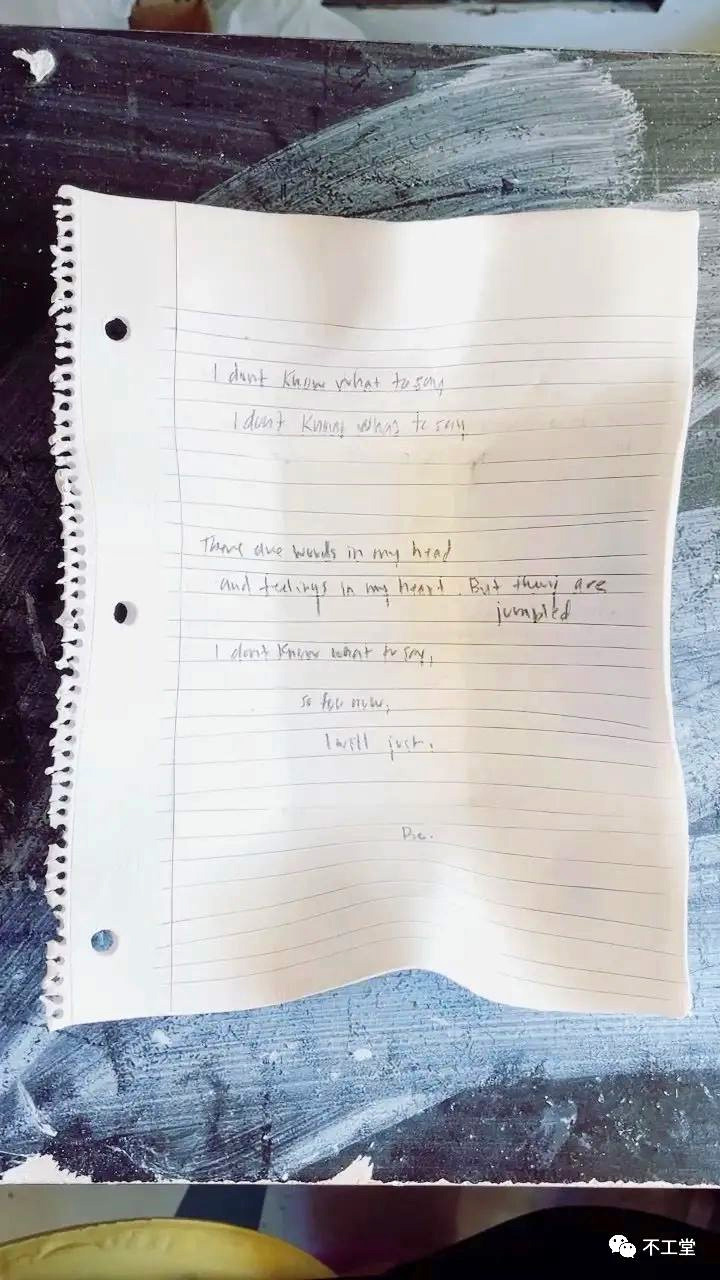 I dont know what to say
I dont know what to say
There are words in my head
and feelings in my heart. But they are
jumpled
I dont know what to say,
so for now,
I will just.
Be.
不工堂